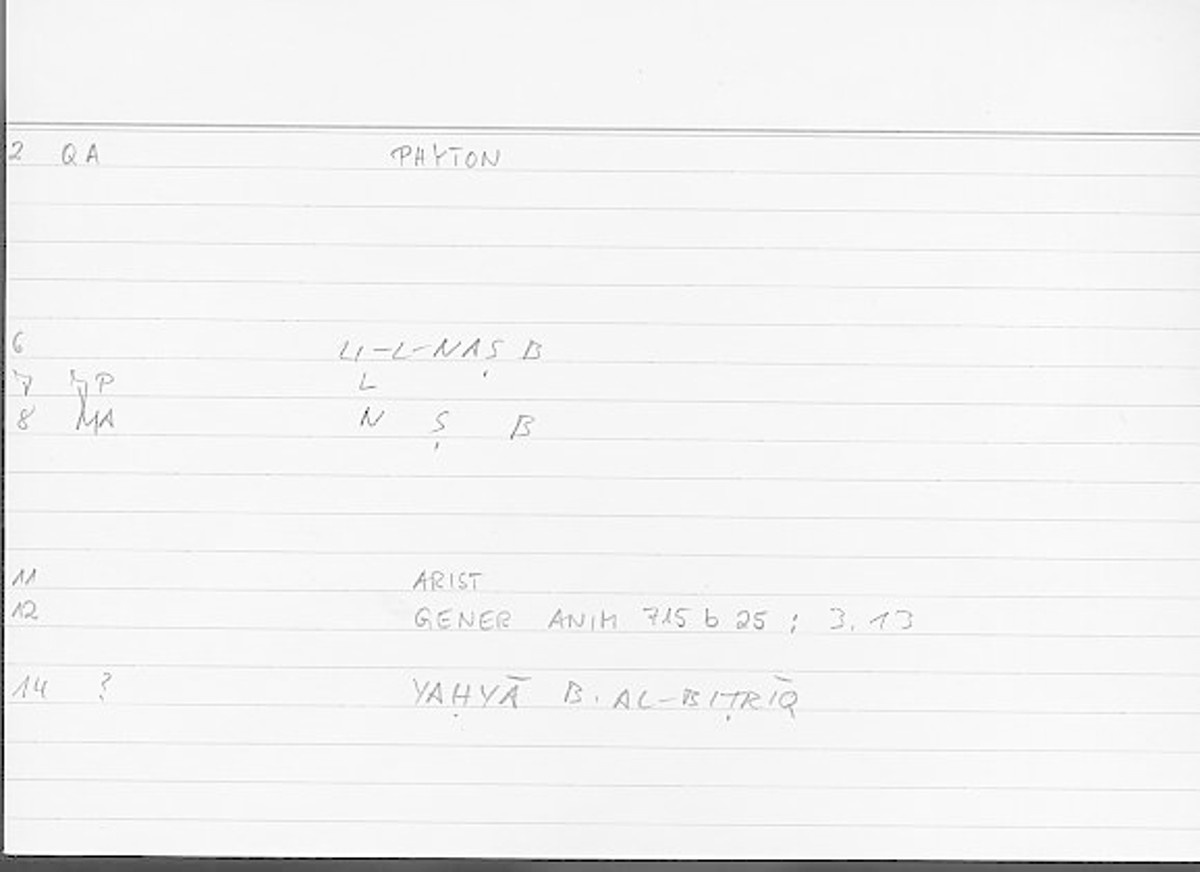 2 QA PHYTON
6 LI-L-NAṢB
7 7P L
8 MA N Ṣ B
11 ARIST
12 GENER ANIM 715 b 25 ; 3.13
14 ? YAḤYĀ B. AL-BIṬRĪQ